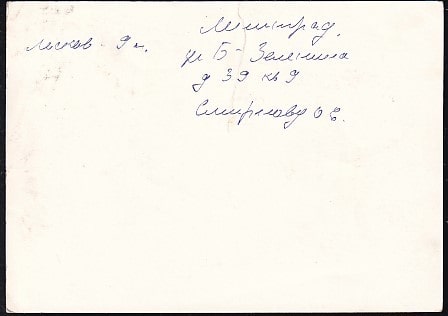 Ленинград.
ул Б-Зеленина
д 39 кв 9
Смирнову О Е.
9 м.